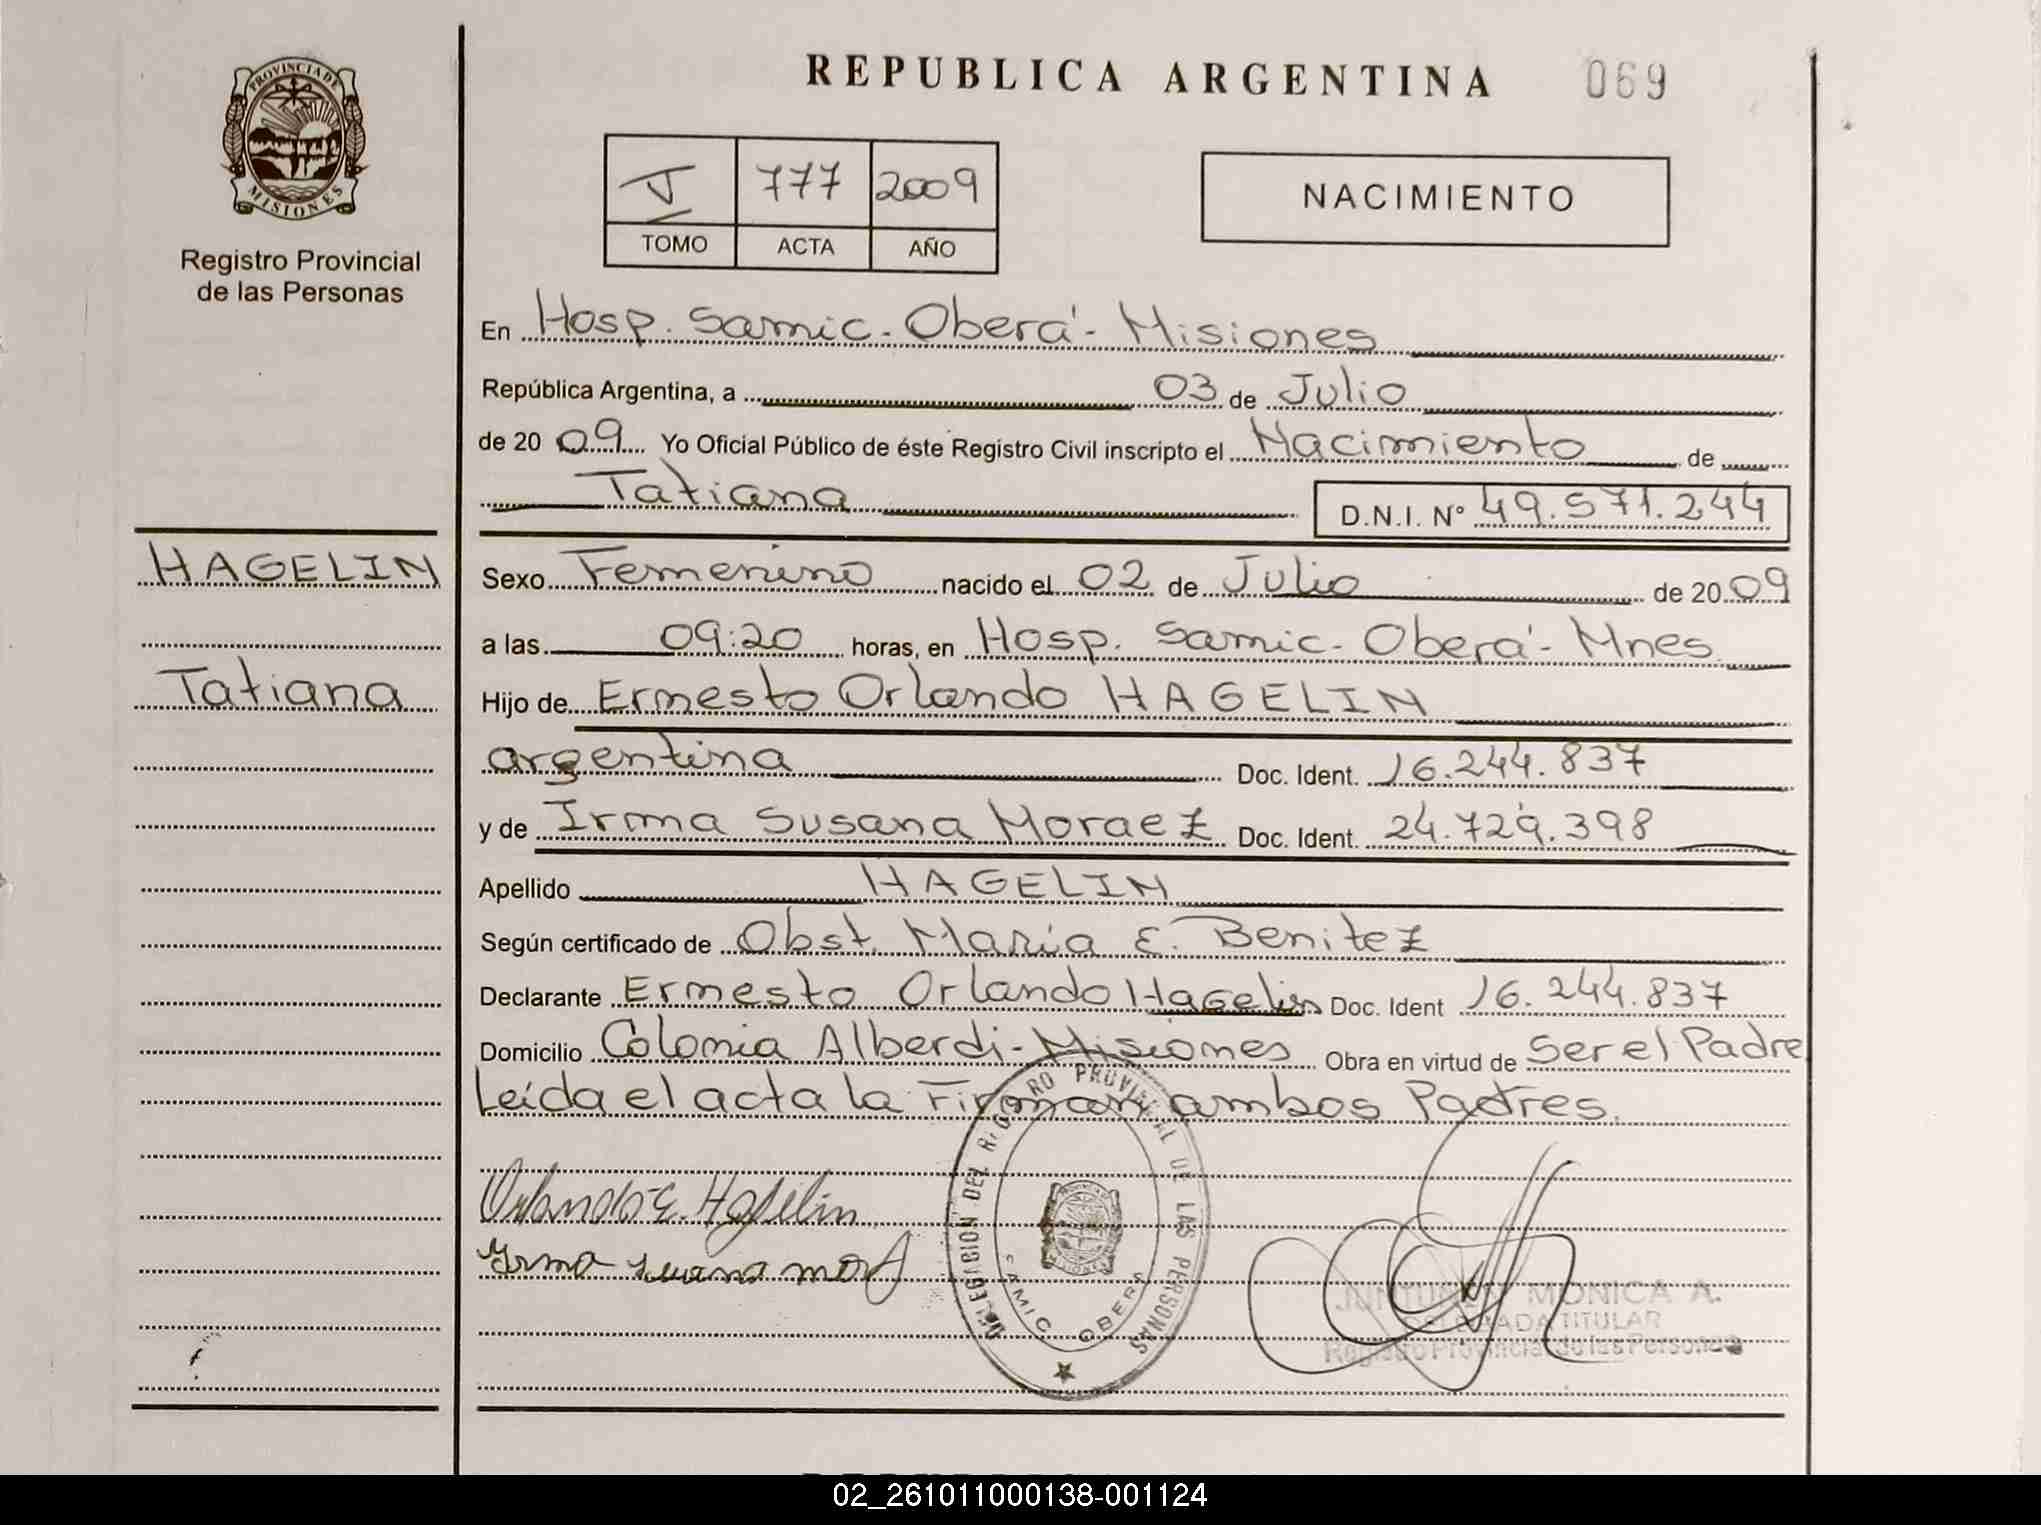 REPUBLICA ARGENTINA 069
PROVINCIA DE
MISIONES
Registro Provincial
de las Personas
J 777 2009
TOMO ACTA AÑO
NACIMIENTO
En Hosp. Samic - Oberá - Misiones
República Argentina, a 03 de Julio
de 20 09 Yo Oficial Público de éste Registro Civil inscripto el Nacimiento de
Tatiana D.N.I. N° 49.571.244
HAGELIN
Tatiana
Sexo Femenino nacido el 02 de Julio de 20 09
a las 09:20 horas, en Hosp. Samic - Oberá - Mnes.
Hijo de Ernesto Orlando HAGELIN
argentina Doc. Ident. 16.244.837
y de Irma Susana Moraez Doc. Ident. 24.729.398
Apellido HAGELIN
Según certificado de Obst. María E. Benitez
Declarante Ernesto Orlando Hagelin Doc. Ident 16.244.837
Domicilio Colonia Alberdi - Misiones Obra en virtud de Ser el Padre
Leída el acta la Firman ambos Padres.
Orlando E. Hagelin
Irma Susana
DELEGACION DEL REGISTRO PROVINCIAL DE LAS PERSONAS
SAMIC OBERA
MONICA A.
DELEGADA TITULAR
Registro Provincial de las Personas
02_261011000138-001124